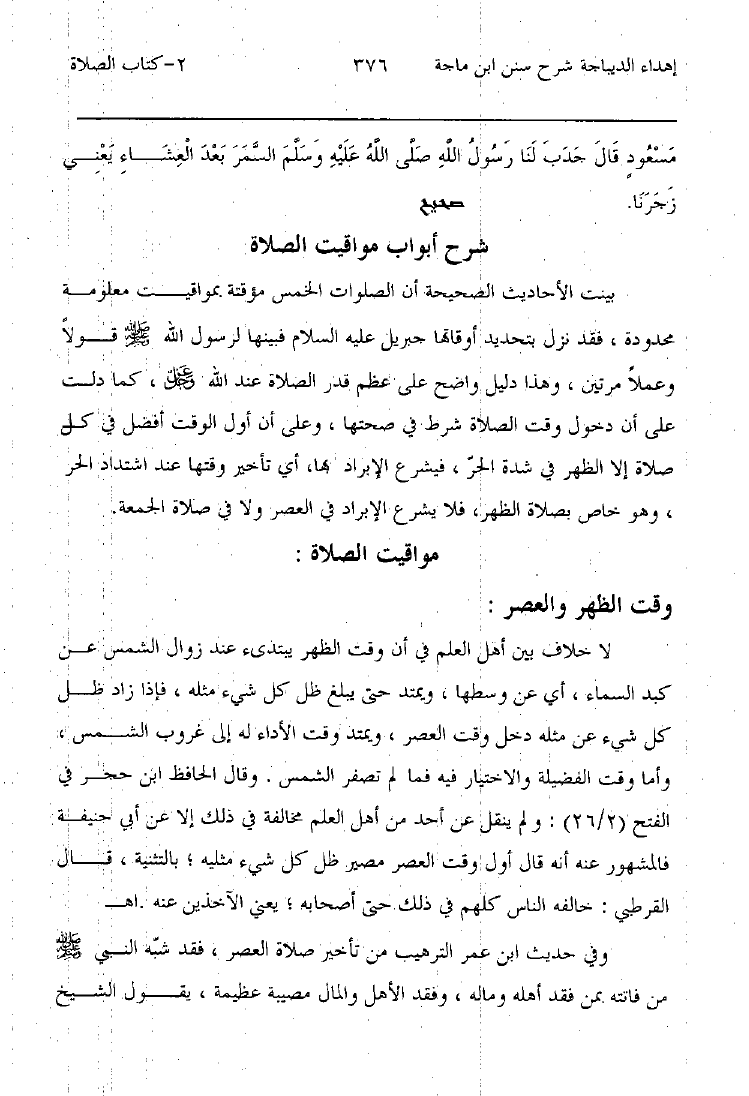 إهداء الديباجة شرح سنن ابن ماجة ٣٧٦ ٢-كتاب الصلاة
مَسْعُودٍ قَالَ جَدَبَ لَنَا رَسُولُ اللَّهِ صَلَّى اللَّهُ عَلَيْهِ وَسَلَّمَ السَّمَرَ بَعْدَ الْعِشَاءِ يَعْنِي
زَجَرَنَا. صحيح
شرح أبواب مواقيت الصلاة
بينت الأحاديث الصحيحة أن الصلوات الخمس مؤقتة بمواقيت معلومة
محدودة ، فقد نزل بتحديد أوقاتها جبريل عليه السلام فبينها لرسول الله ﷺ قولاً
وعملاً مرتين ، وهذا دليل واضح على عظم قدر الصلاة عند الله عز وجل ، كما دلت
على أن دخول وقت الصلاة شرط في صحتها ، وعلى أن أول الوقت أفضل في كل
صلاة إلا الظهر في شدة الحرّ ، فيشرع الإبراد بها، أي تأخير وقتها عند اشتداد الحر
، وهو خاص بصلاة الظهر، فلا يشرع الإبراد في العصر ولا في صلاة الجمعة.
مواقيت الصلاة :
وقت الظهر والعصر :
لا خلاف بين أهل العلم في أن وقت الظهر يبتدىء عند زوال الشمس عن
كبد السماء ، أي عن وسطها ، ويمتد حتى يبلغ ظل كل شيء مثله ، فإذا زاد ظل
كل شيء عن مثله دخل وقت العصر ، ويمتد وقت الأداء له إلى غروب الشمس ،
وأما وقت الفضيلة والاختيار فيه فما لم تصفر الشمس . وقال الحافظ ابن حجر في
الفتح (٢٦/٢) : ولم ينقل عن أحد من أهل العلم مخالفة في ذلك إلا عن أبي حنيفة
فالمشهور عنه أنه قال أول وقت العصر مصير ظل كل شيء مثليه ؛ بالتثنية ، قال
القرطبي : خالفه الناس كلهم في ذلك حتى أصحابه ؛ يعني الآخذين عنه .اهـ
وفي حديث ابن عمر الترهيب من تأخير صلاة العصر ، فقد شبّه النبي ﷺ
من فاتته بمن فقد أهله وماله ، وفقد الأهل والمال مصيبة عظيمة ، يقول الشيخ